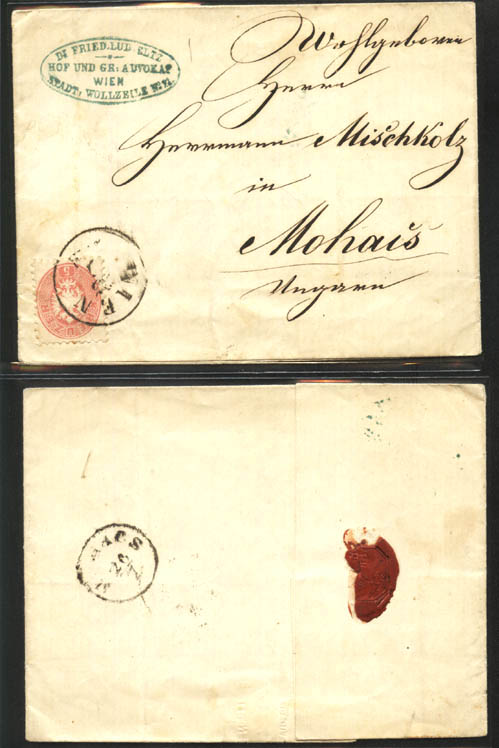 DI FRIED. LUD
HOF UND GR: ADVOKAT
WIEN
STADT, WOLLZEILE
Wohlgeboren
Herrn
Herrmann Mischkolz
in
Mohais
Ungarn
WIEN